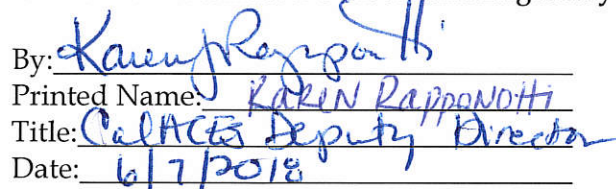 By: Karen J Rapponotti
Printed Name: KAREN RAPPONOTTI
Title: CalACES Deputy Director
Date: 6/7/2018